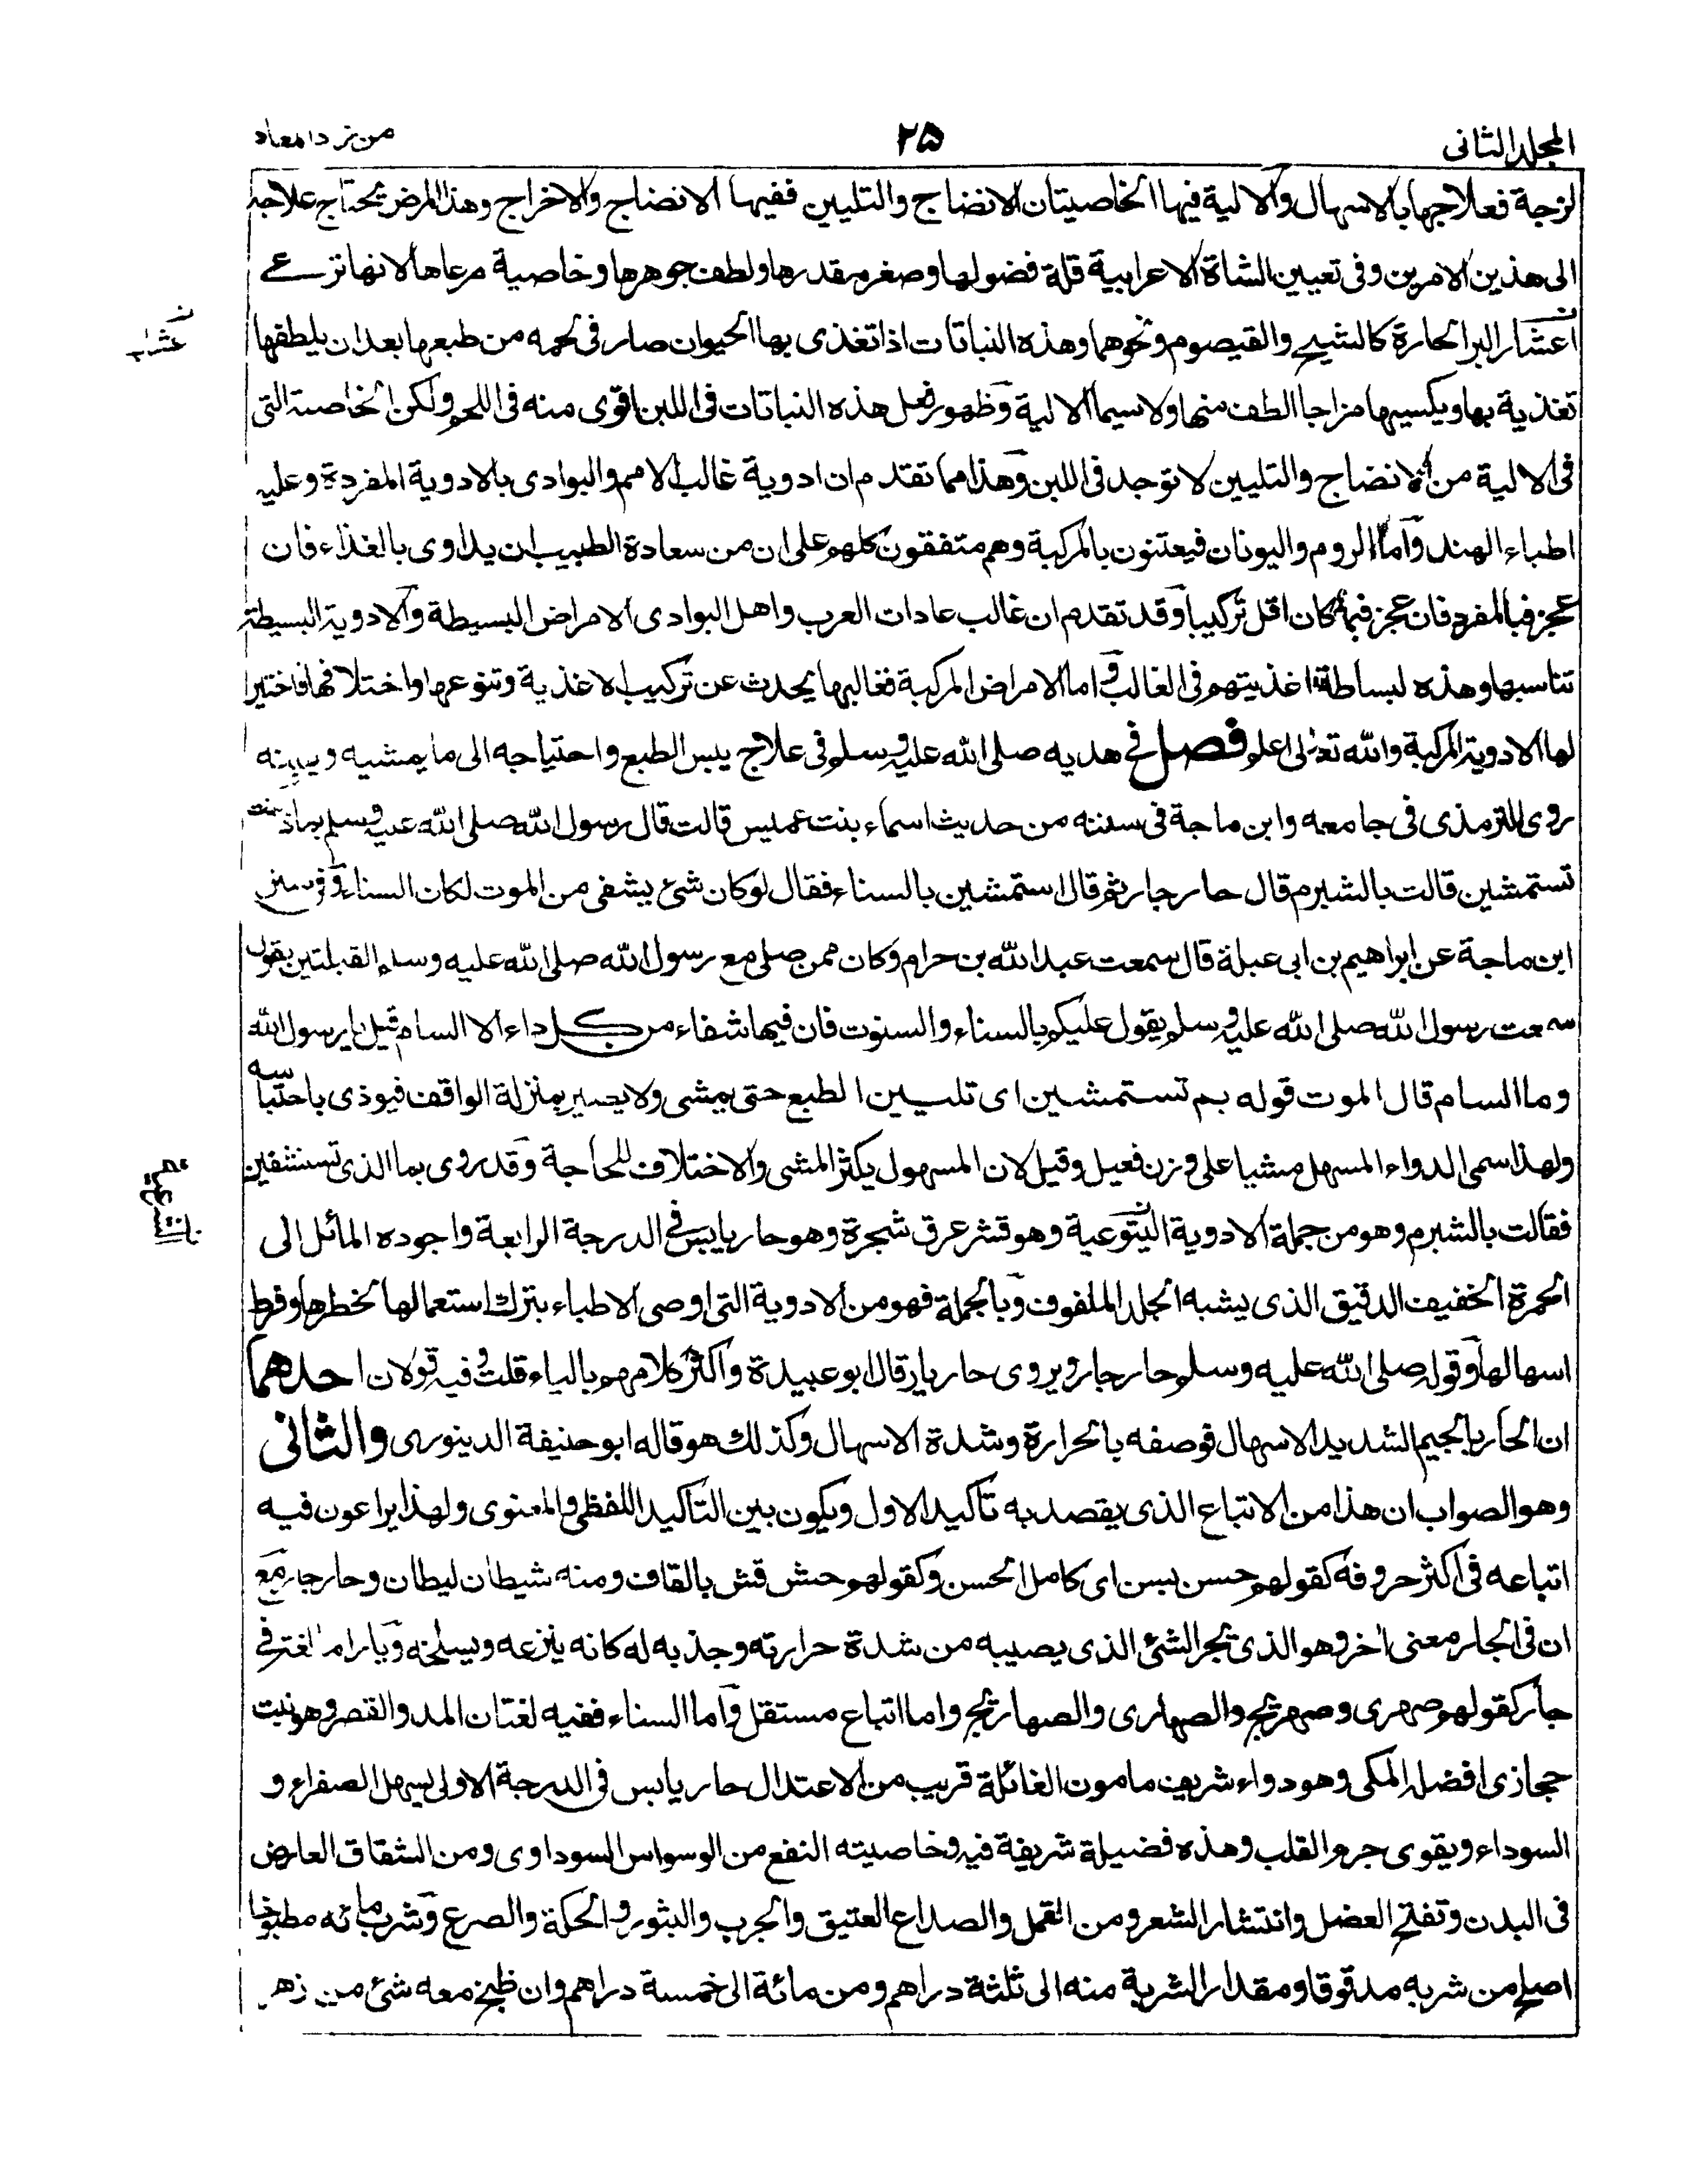 المجلد الثانى
٢٥
من زاد المعاد
لزجة فعلاجها بالاسهال والالية فيها الخاصيتان الانضاج والتليين ففيها الانضاج والاخراج وهذا المرض يحتاج علاجه
الى هذين الامرين وفى تعيين الشاة الاعرابية قلة فضولها وصغر مقدرها ولطف جوهرها وخاصية مرعاها لانها ترعے
اعشار البر الحارة كالشيح والقيصوم ونحوهما وهذه النباتات اذا تغذى بها الحيوان صار فى لحمه من طبعها بعد ان يلطفها
تغذية بها ويكسيها مزاجا الطف منها ولاسيما الالية وظهور فعل هذه النباتات فى اللبن اقوى منه فى اللحم ولكن الخاصية التى
فى الالية من الانضاج والتليين لا توجد فى اللبن وهذا مما تقدم ان ادوية غالب الامم والبوادى بالادوية المفردة وعليه
اطباء الهند واما الروم واليونان فيعتنون بالمركبة وهم متفقون كلهم على ان من سعادة الطبيب ان يداوى بالغذاء فان
عجز فبالمفرد فان عجز فبما كان اقل تركيبا وقد تقدم ان غالب عادات العرب واهل البوادى الامراض البسيطة والادوية البسيطة
تناسبها وهذه لبساطة اغذيتهم فى الغالب واما الامراض المركبة فغالبها يحدث عن تركيب الاغذية وتنوعها واختلافها فاختير
لها الادوية المركبة والله تعالى اعلم فصل فے هديه صلى الله عليه وسلم فى علاج يبس الطبع واحتياجه الى ما يمشيه ويلينه
روى الترمذى فى جامعه وابن ماجة فى سننه من حديث اسماء بنت عميس قالت قال رسول الله صلى الله عليه وسلم بماذا كنت
تستمشين قالت بالشبرم قال حار جار ثم قال استمشين بالسناء فقال لو كان شئ يشفى من الموت لكان السناء وفى سنن
ابن ماجة عن ابراهيم بن ابى عبلة قال سمعت عبد الله بن حرام وكان ممن صلى مع رسول الله صلى الله عليه وسلم القبلتين يقول
سمعت رسول الله صلى الله عليه وسلم يقول عليكم بالسناء والسنوت فان فيها شفاء من كل داء الا السام قيل يا رسول الله
وما السام قال الموت قوله بم تستمشين اى تليين الطبع حتى يمشى ولا يصير بمنزلة الواقف فيوذى باحتباسه
ولهذا سمى الدواء المسهل مشيا على وزن فعيل وقيل لان المسهول يكثر المشى والاختلاف للحاجة وقد روى بما الذى تستشفين
فقالت بالشبرم وهو من جملة الادوية اليتوعية وهو قشر عرق شجرة وهو حار يابس فے الدرجة الرابعة واجوده المائل الى
الحمرة الخفيف الدقيق الذى يشبه الجلد الملفوف وبالجملة فهو من الادوية التى اوصى الاطباء بترك استعمالها لخطرها وفرط
اسهالها وقوله صلى الله عليه وسلم حار جار ويروى حار يار قال ابو عبيدة واكثر كلامهم بالياء قلت وفيه قولان احدهما
ان الحار بالجيم الشديد الاسهال فوصفه بالحرارة وشدة الاسهال وكذلك هو قاله ابو حنيفة الدينورى والثانى
وهو الصواب ان هذا من الاتباع الذى يقصد به تاكيد الاول ويكون بين التاكيد اللفظى والمعنوى ولهذا يراعون فيه
اتباعه فى اكثر حروفه كقولهم حسن بسن اى كامل الحسن وكقولهم حسن قسن بالقاف ومنه شيطان ليطان وحار جار مع
ان فى الجار معنى اخر وهو الذى يجر الشئ الذى يصيبه من شدة حرارته وجذبه له كانه ينزعه ويسلخه ويار اما لغة فے
جار كقولهم صهرى وصهريج والصهارى والصهاريج واما اتباع مستقل واما السناء ففيه لغتان المد والقصر وهو نبت
حجازى افضله المكى وهو دواء شريف مامون الغائلة قريب من الاعتدال حار يابس فى الدرجة الاولى يسهل الصفراء و
السوداء ويقوى جرم القلب وهذه فضيلة شريفة فيه وخاصيته النفع من الوسواس السوداوى ومن الشقاق العارض
فى البدن وتفتح العضل وانتشار الشعر ومن القمل والصداع العتيق والجرب والبثور والحكة والصرع وشرب مائه مطبوخا
اصلح من شربه مدقوقا ومقدار الشربة منه الى ثلثة دراهم ومن مائة الى خمسة دراهم وان طبخ معه شئ من زهر